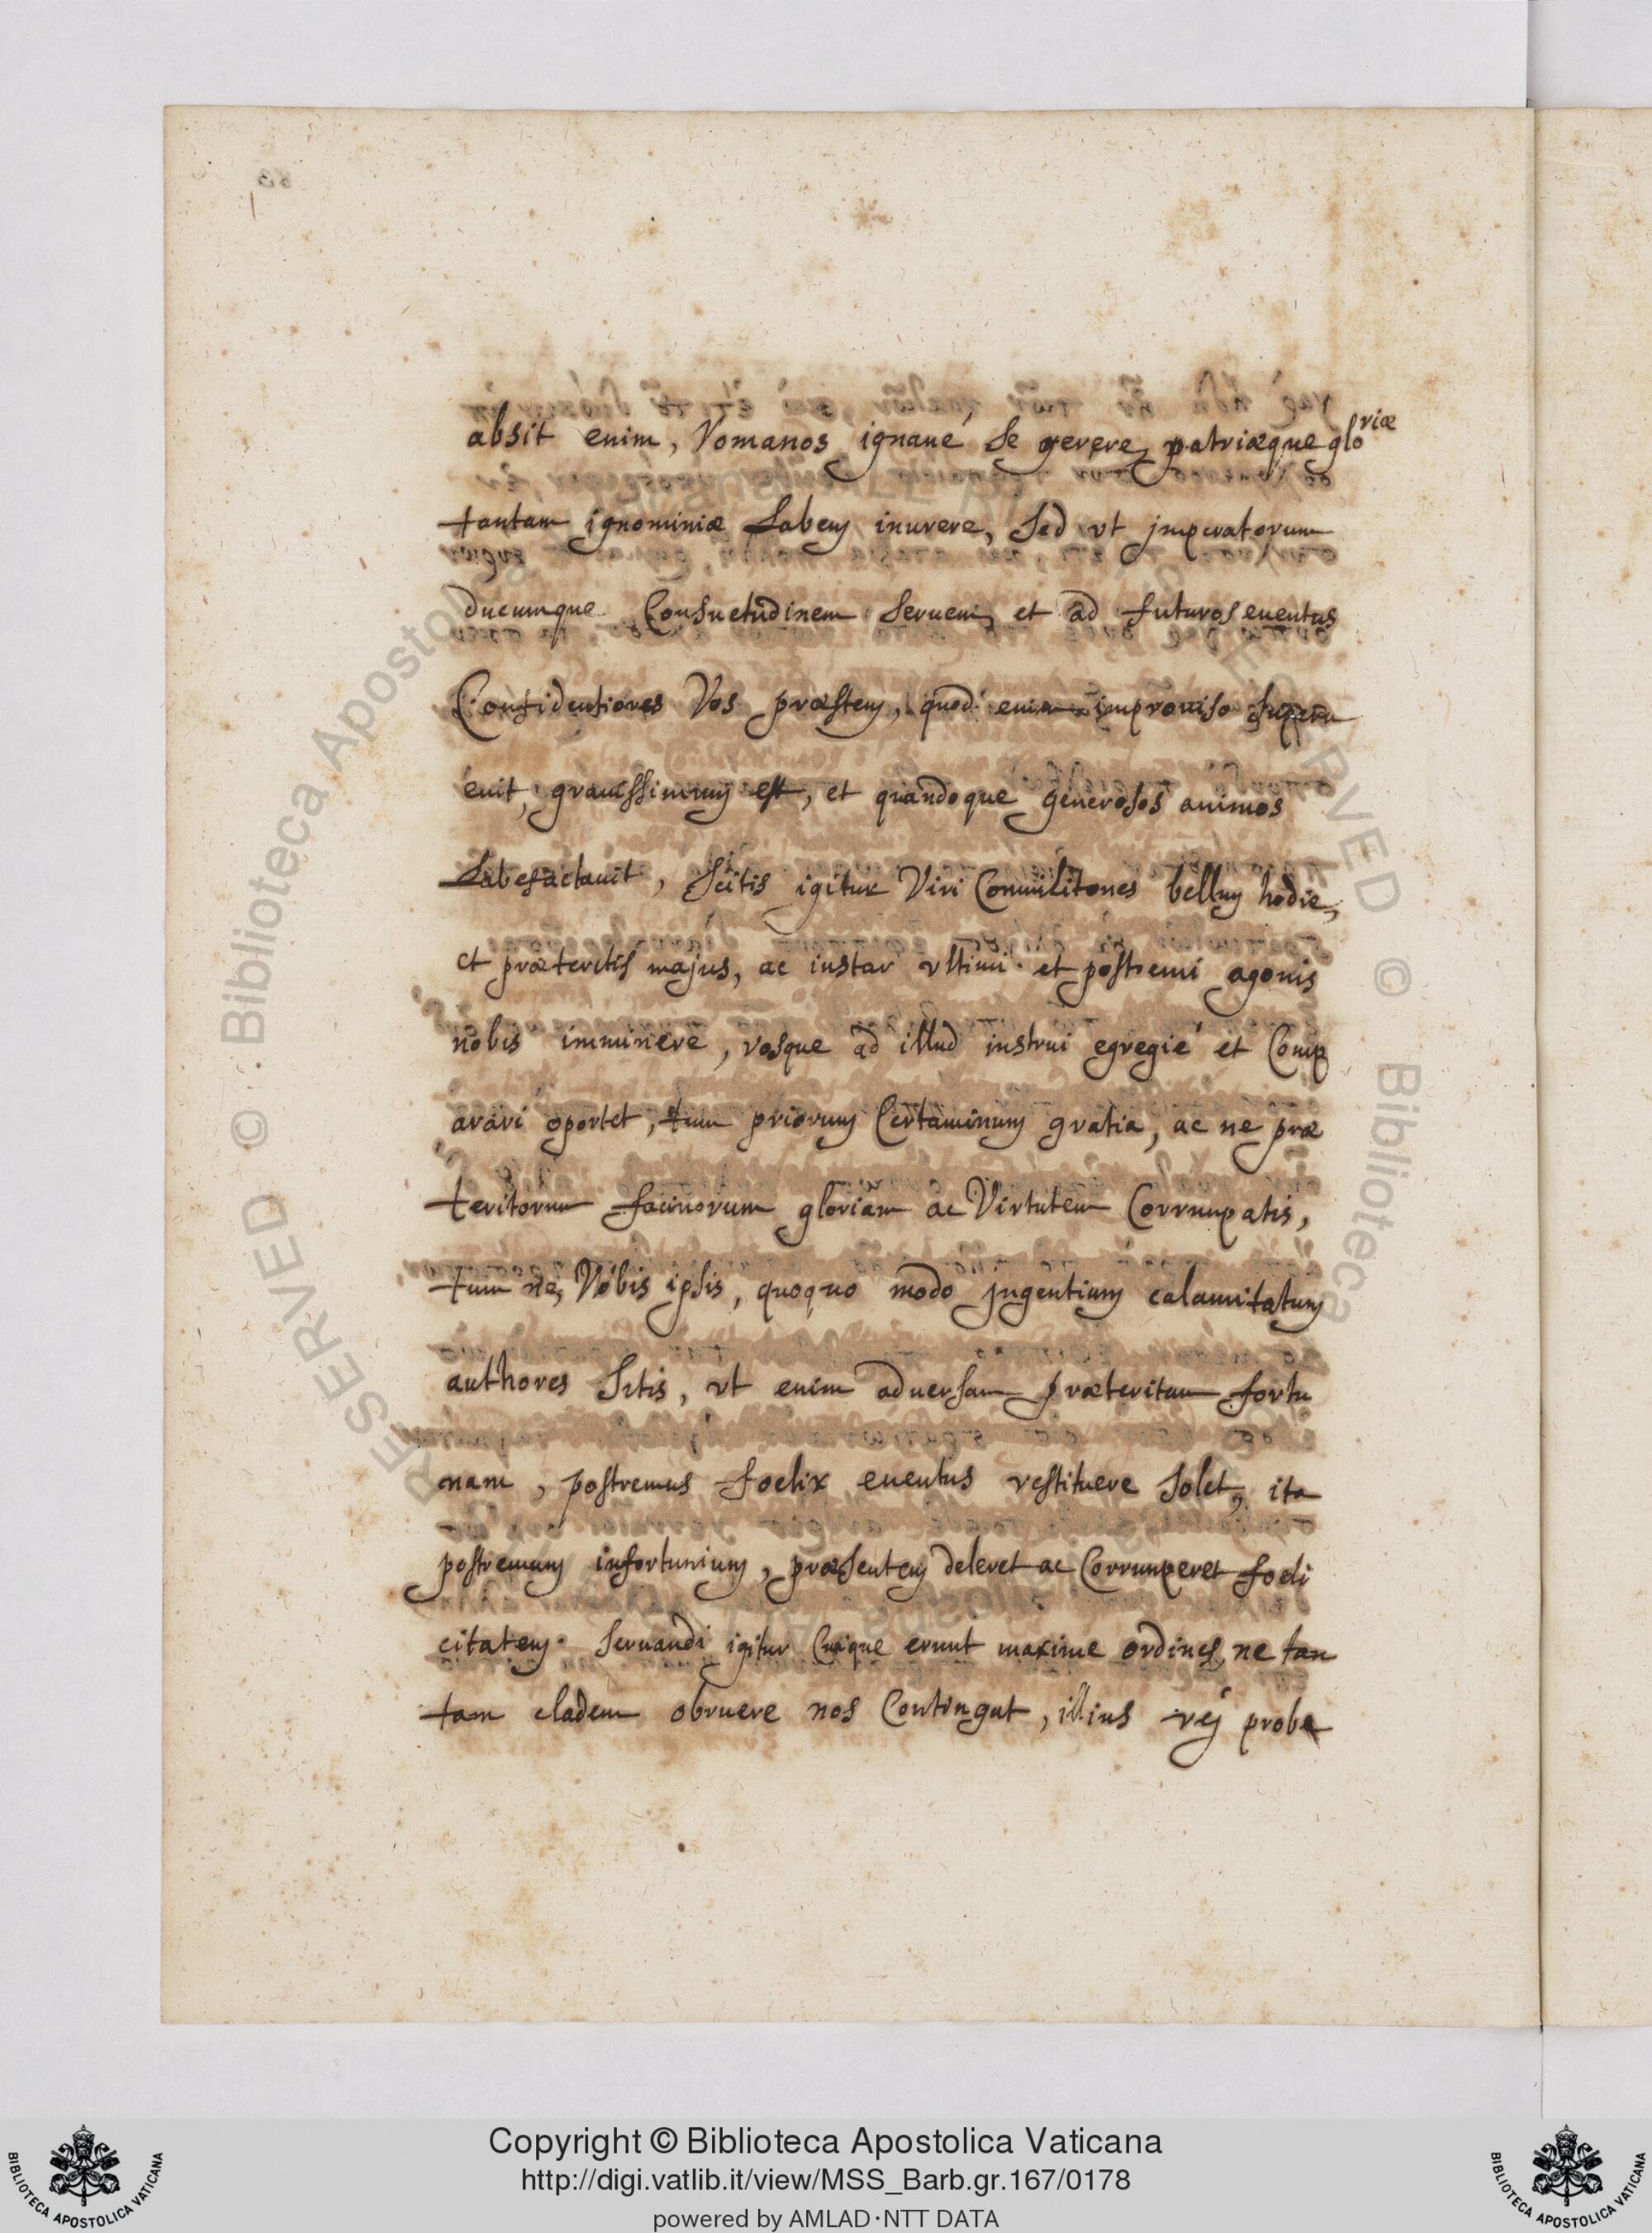 absit enim, Romanos ignaué se gerere, patriæque gloriæ
tantam ignominiæ labem inurere, sed vt jmperatorum
ducumque Consuetudinem seruem, et ad futuros euentus
Confidentiores Vos præstem, quod enim improuiso superu
enit, grauissimum est, et quandoque generosos animos
Labefactauit, Scitis igitur Viri Conmilitones bellum hodie,
et præteritis majus, ac instar vltimi et postremi agonis
nobis imminere, vosque ad illud instrui egregié et Comp
arari oportet, tum priorum Certaminum gratia, ac ne præ
teritorum facinorum gloriam ac Virtutem Corrumpatis,
tum ne, Vobis ipsis, quoquo modo jngentium calamitatum
authores Sitis, vt enim aduersam præteritam fortu
nam, postremus foelix euentus restituere solet, ita
postremum infortunium, præsentem deleret ac Corrumperet foeli
citatem. Seruandi igitur Cuique erunt maxime ordines, ne tan
tam cladem obruere nos Contingat, illius rej proba
Copyright © Biblioteca Apostolica Vaticana
http://digi.vatlib.it/view/MSS_Barb.gr.167/0178
powered by AMLAD·NTT DATA